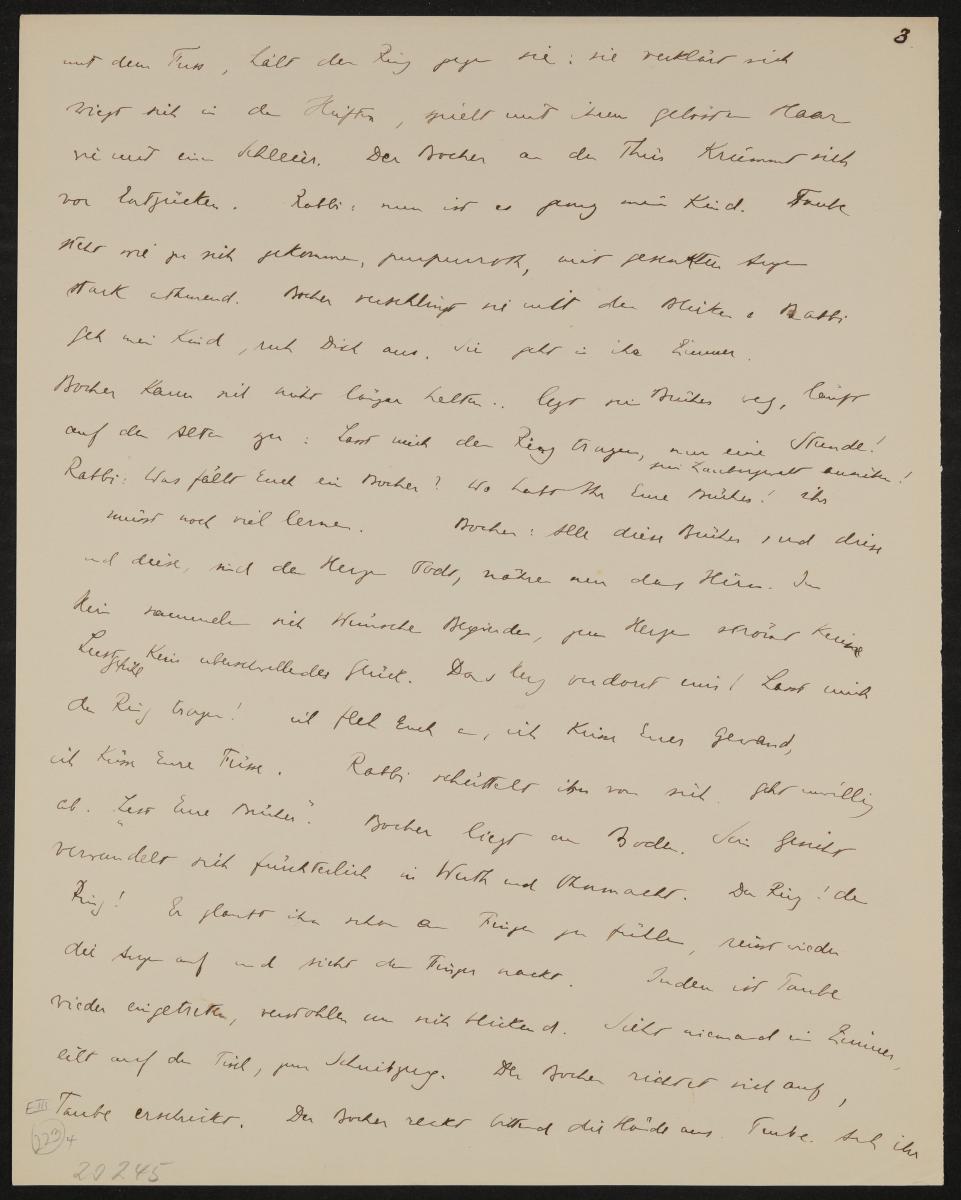 3
mit dem Fuss, hält den Ring gegen sie: sie verklärt sich
wiegt sich in den Hüften, spielt mit ihrem gelösten Haar
wie mit einem Schleier. Der Bocher an der Thür krümmt sich
vor Entzücken. Rabbi: nun ist es ganz mein Kind. Taube
steht wie zu sich gekommen, purpurroth, mit gesenkten Augen
stark athmend. Bocher verschlingt sie mit den Blicken. Rabbi
geh mein Kind, ruh Dich aus. Sie geht in ihr Zimmer.
Bocher kann sich nicht länger halten.. legt sein Bücher weg, läuft
auf den Alten zu: Lasst mich den Ring tragen, nur eine Stunde!
sein Zaubergewalt ausüben!
Rabbi: Was fällt Euch ein Bocher? Wo habt Ihr Eure Bücher! ihr
müsst noch viel lernen. Bocher: Alle diese Bücher, und diese
und diese, sind dem Herzen Todt, nähren nur das Hirn. Im
Hirn sammeln sich Wünsche Begierden, zum Herzen strömt keine
Lustgefühl kein überschwellendes Glück. Das Herz verdorrt mir! Lasst mich
den Ring tragen! ich fleh Euch an, ich küsse Euer Gewand,
ich küsse Eure Füsse. Rabbi schüttelt ihn von sich. geht unwillig
ab. "Lest Eure Bücher". Bocher liegt am Boden. Sein Gesicht
verwandelt sich fürchterlich in Wuth und Ohnmacht. Der Ring! der
Ring! Er glaubt ihn schon am Finger zu fühlen, reisst wieder
die Augen auf und sieht den Finger nackt. Indem ist Taube
wieder eingetreten, verstohlen um sich blickend. Sieht niemand im Zimmer,
eilt auf den Tisch, zum Schnitzzeug. Der Bocher richtet sich auf,
Taube erschrickt. Der Bocher reckt bittend die Hände aus. Taube. Ach ihr
E III
223/4
20245